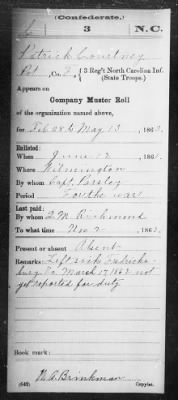 (Confederate.)
C 3 N.C.
Patrick Courtney
Pvt, Co. E, 3 Reg't North Carolina Inf. (State Troops.)
Appears on
Company Muster Roll
of the organization named above,
for Feb 28 to May 13, 1863.
Enlisted:
When June 12, 186
Where Wilmington
By whom Capt. Parsley
Period For the war
Last paid:
By whom Q.M. Richmond
To what time Nov 2, 1862.
Present or absent Absent
Remarks: Left sick Fredricks-
burg Va. March 17 1862 not
yet reported for duty
Book mark:
W. A. Brinkman
(642) Copyist.